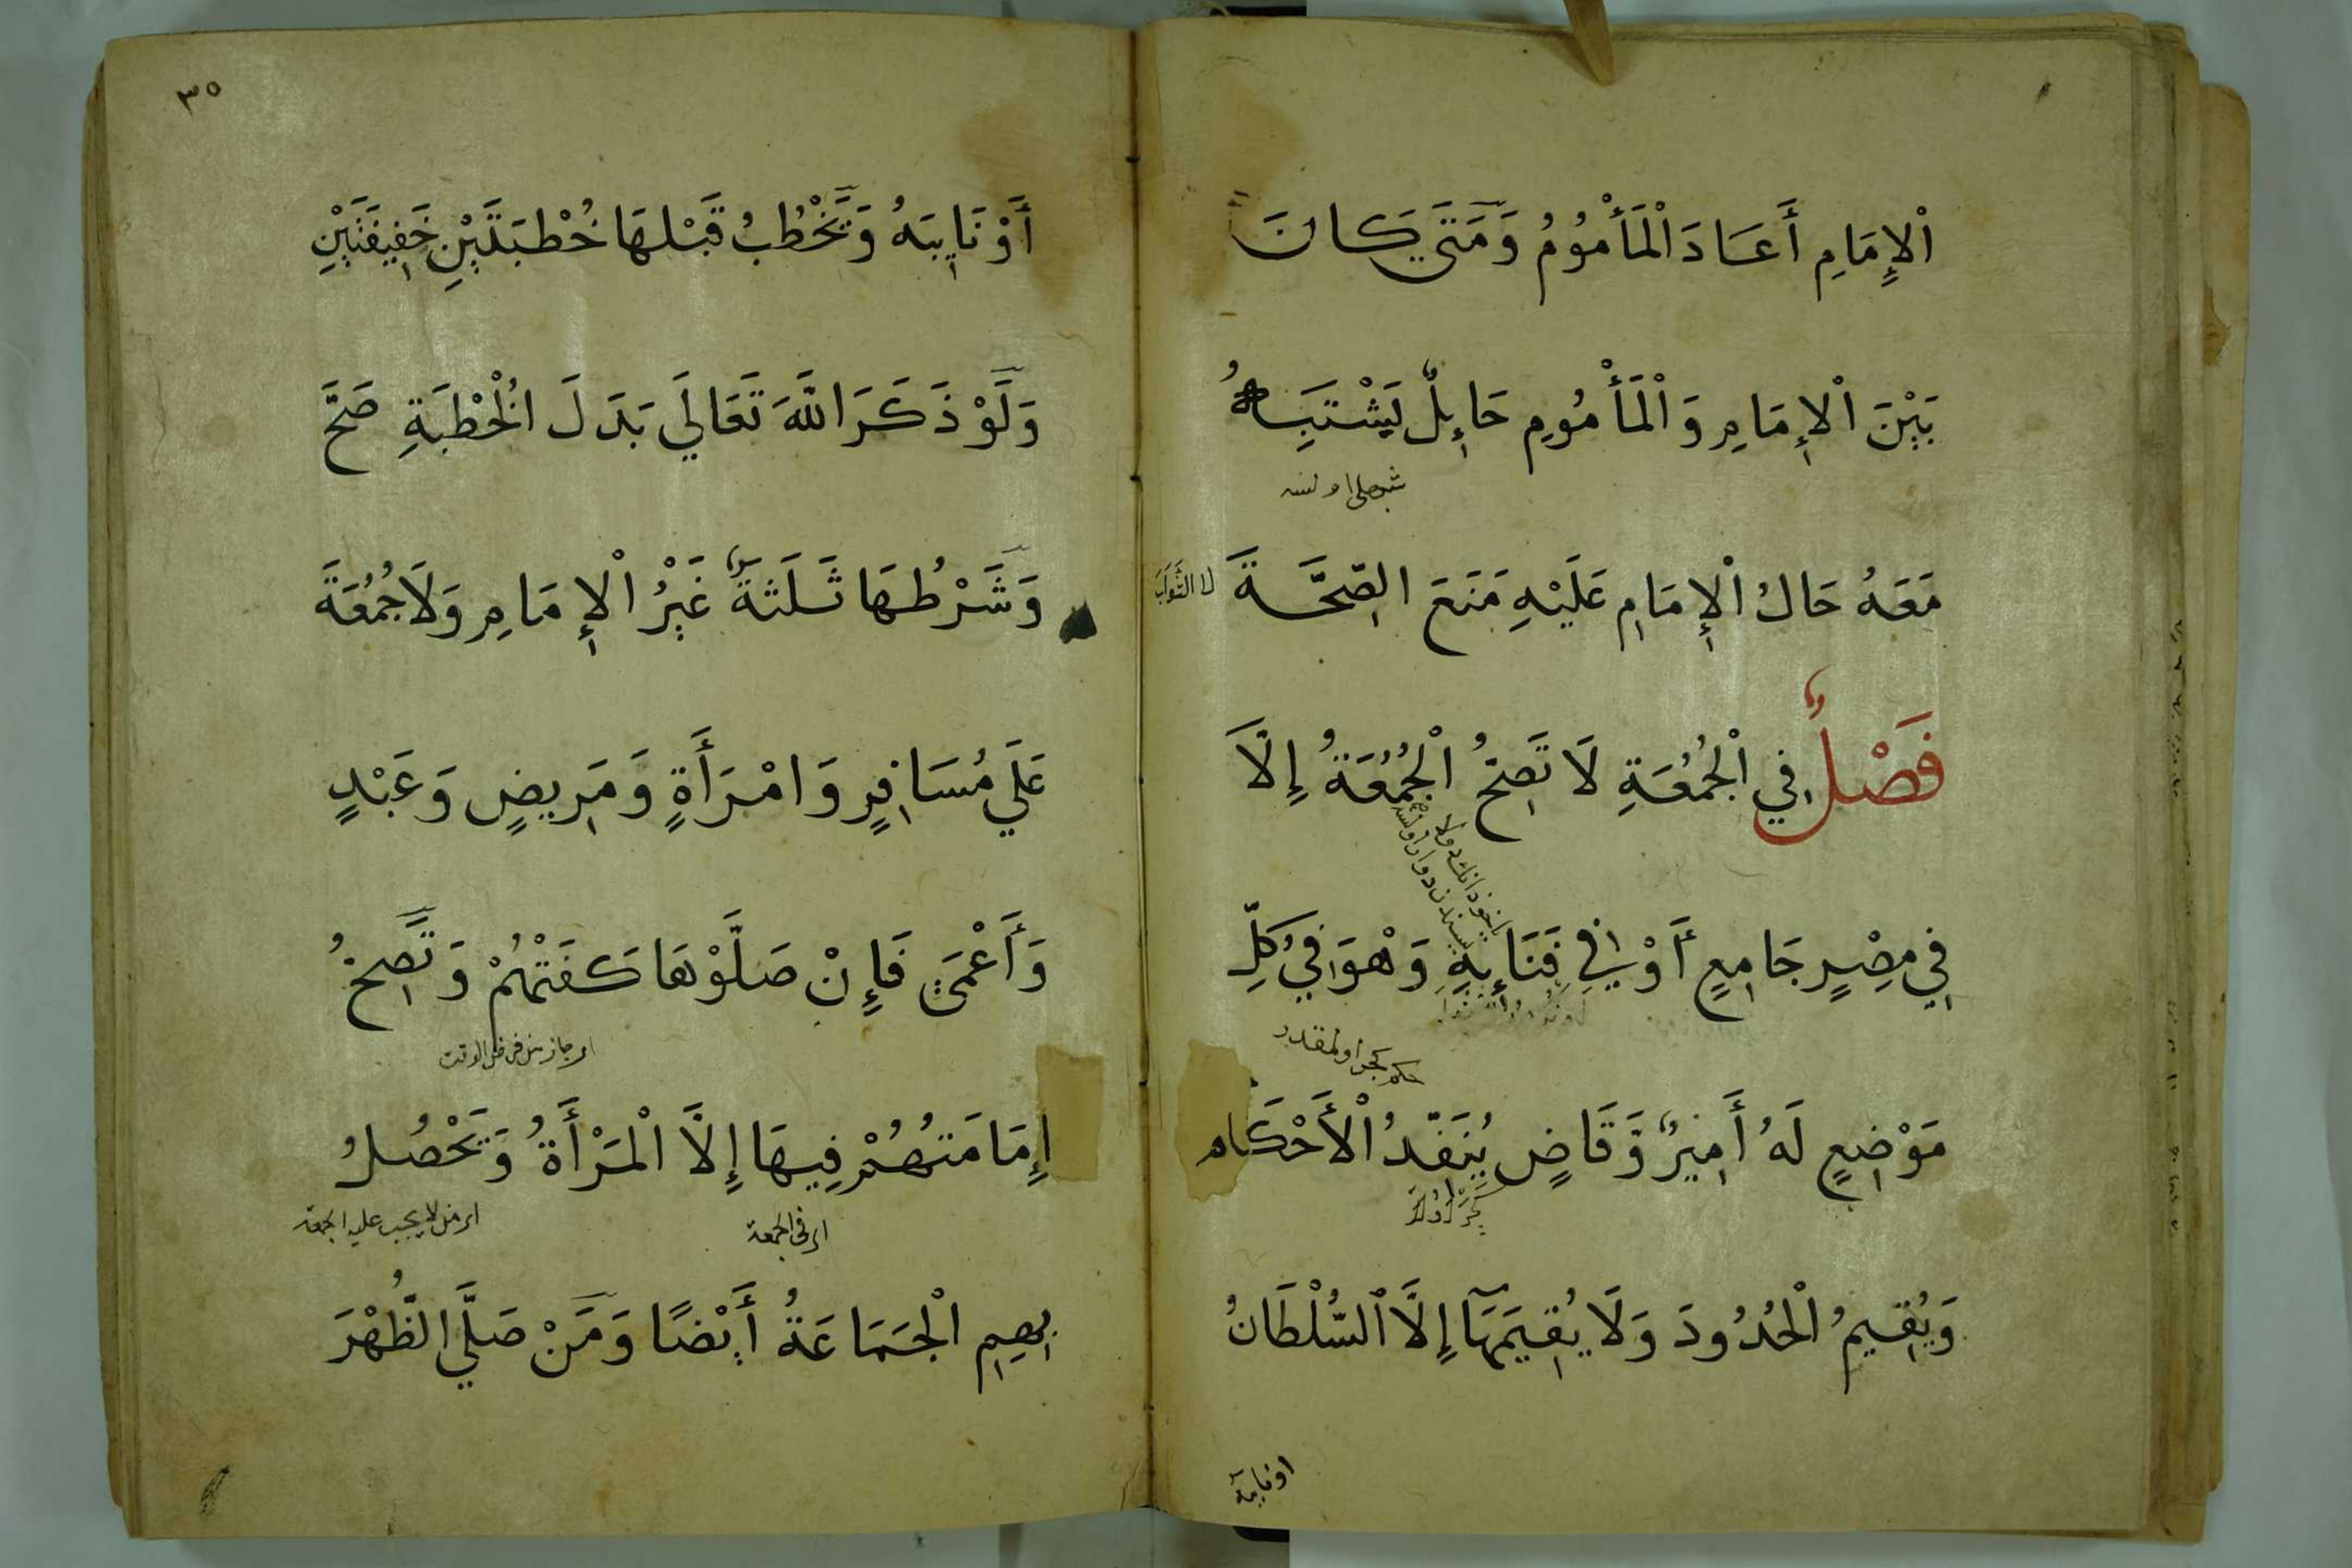 اْلإِمَامِ أَعَادَ الْمَأْمُوُمُ وَمَتَي كَانَ
بَيْنَ اْلإِمَامِ وَالْمَأْمُومِ حَائِلٌ يَشْتَبِهُ
مَعَهُ حَالُ اْلإِمَامِ عَلَيْهِ مَنَعَ الصِّحَّةَ
فَصْلٌ فِي الْجُمُعَةِ لَا تَصِحُّ الْجُمُعَةُ إِلَّا
فِي مِصْرٍ جَامِعٍ أَوْ فِي فِنَائِهِ وَهْوَ فِي كُلِّ
مَوْضِعٍ لَهُ أَمِيرٌ وَقَاضٍ يُنَفّذُ الْأَحْكَام
وَيُقِيمُ الْحُدُودَ وَلَا يُقِيمَهَا إِلَّا السُّلْطَانُ
او نايبه
٣٥
أَوْ نَايِبَهُ وَيَخْطُبُ قَبْلهَا خُطْبَتَيْنِ خَفِيفَتَيْنِ
وَلَوْ ذَكَرَ اللَّهَ تَعَالَي بَدَلَ الْخُطْبَةِ صَحَّ
وَشَرْطُهَا ثَلَثَةٌ غَيْرُ اْلإِمَامِ وَلَا جُمُعَةَ
عَلَي مُسَافِرٍ وَامْرَأَةٍ وَمَرِيضٍ وَعَبْدٍ
وَأَعْمَى فَإِنْ صَلَّوْهَا كَفَتْهُمْ وَتَصِحُّ
اى جازت عن فرض الوقت
إِمَامَتهُمْ فِيهَا إِلَّا الْمَرْأَةُ وَتَحْصُلُ
اى فى الجمعة
اى من لا يجب عليه الجمعة
بِهِمِ الْجَمَاعَةُ أَيْضًا وَمَنْ صَلَّي الظُّهْرَ